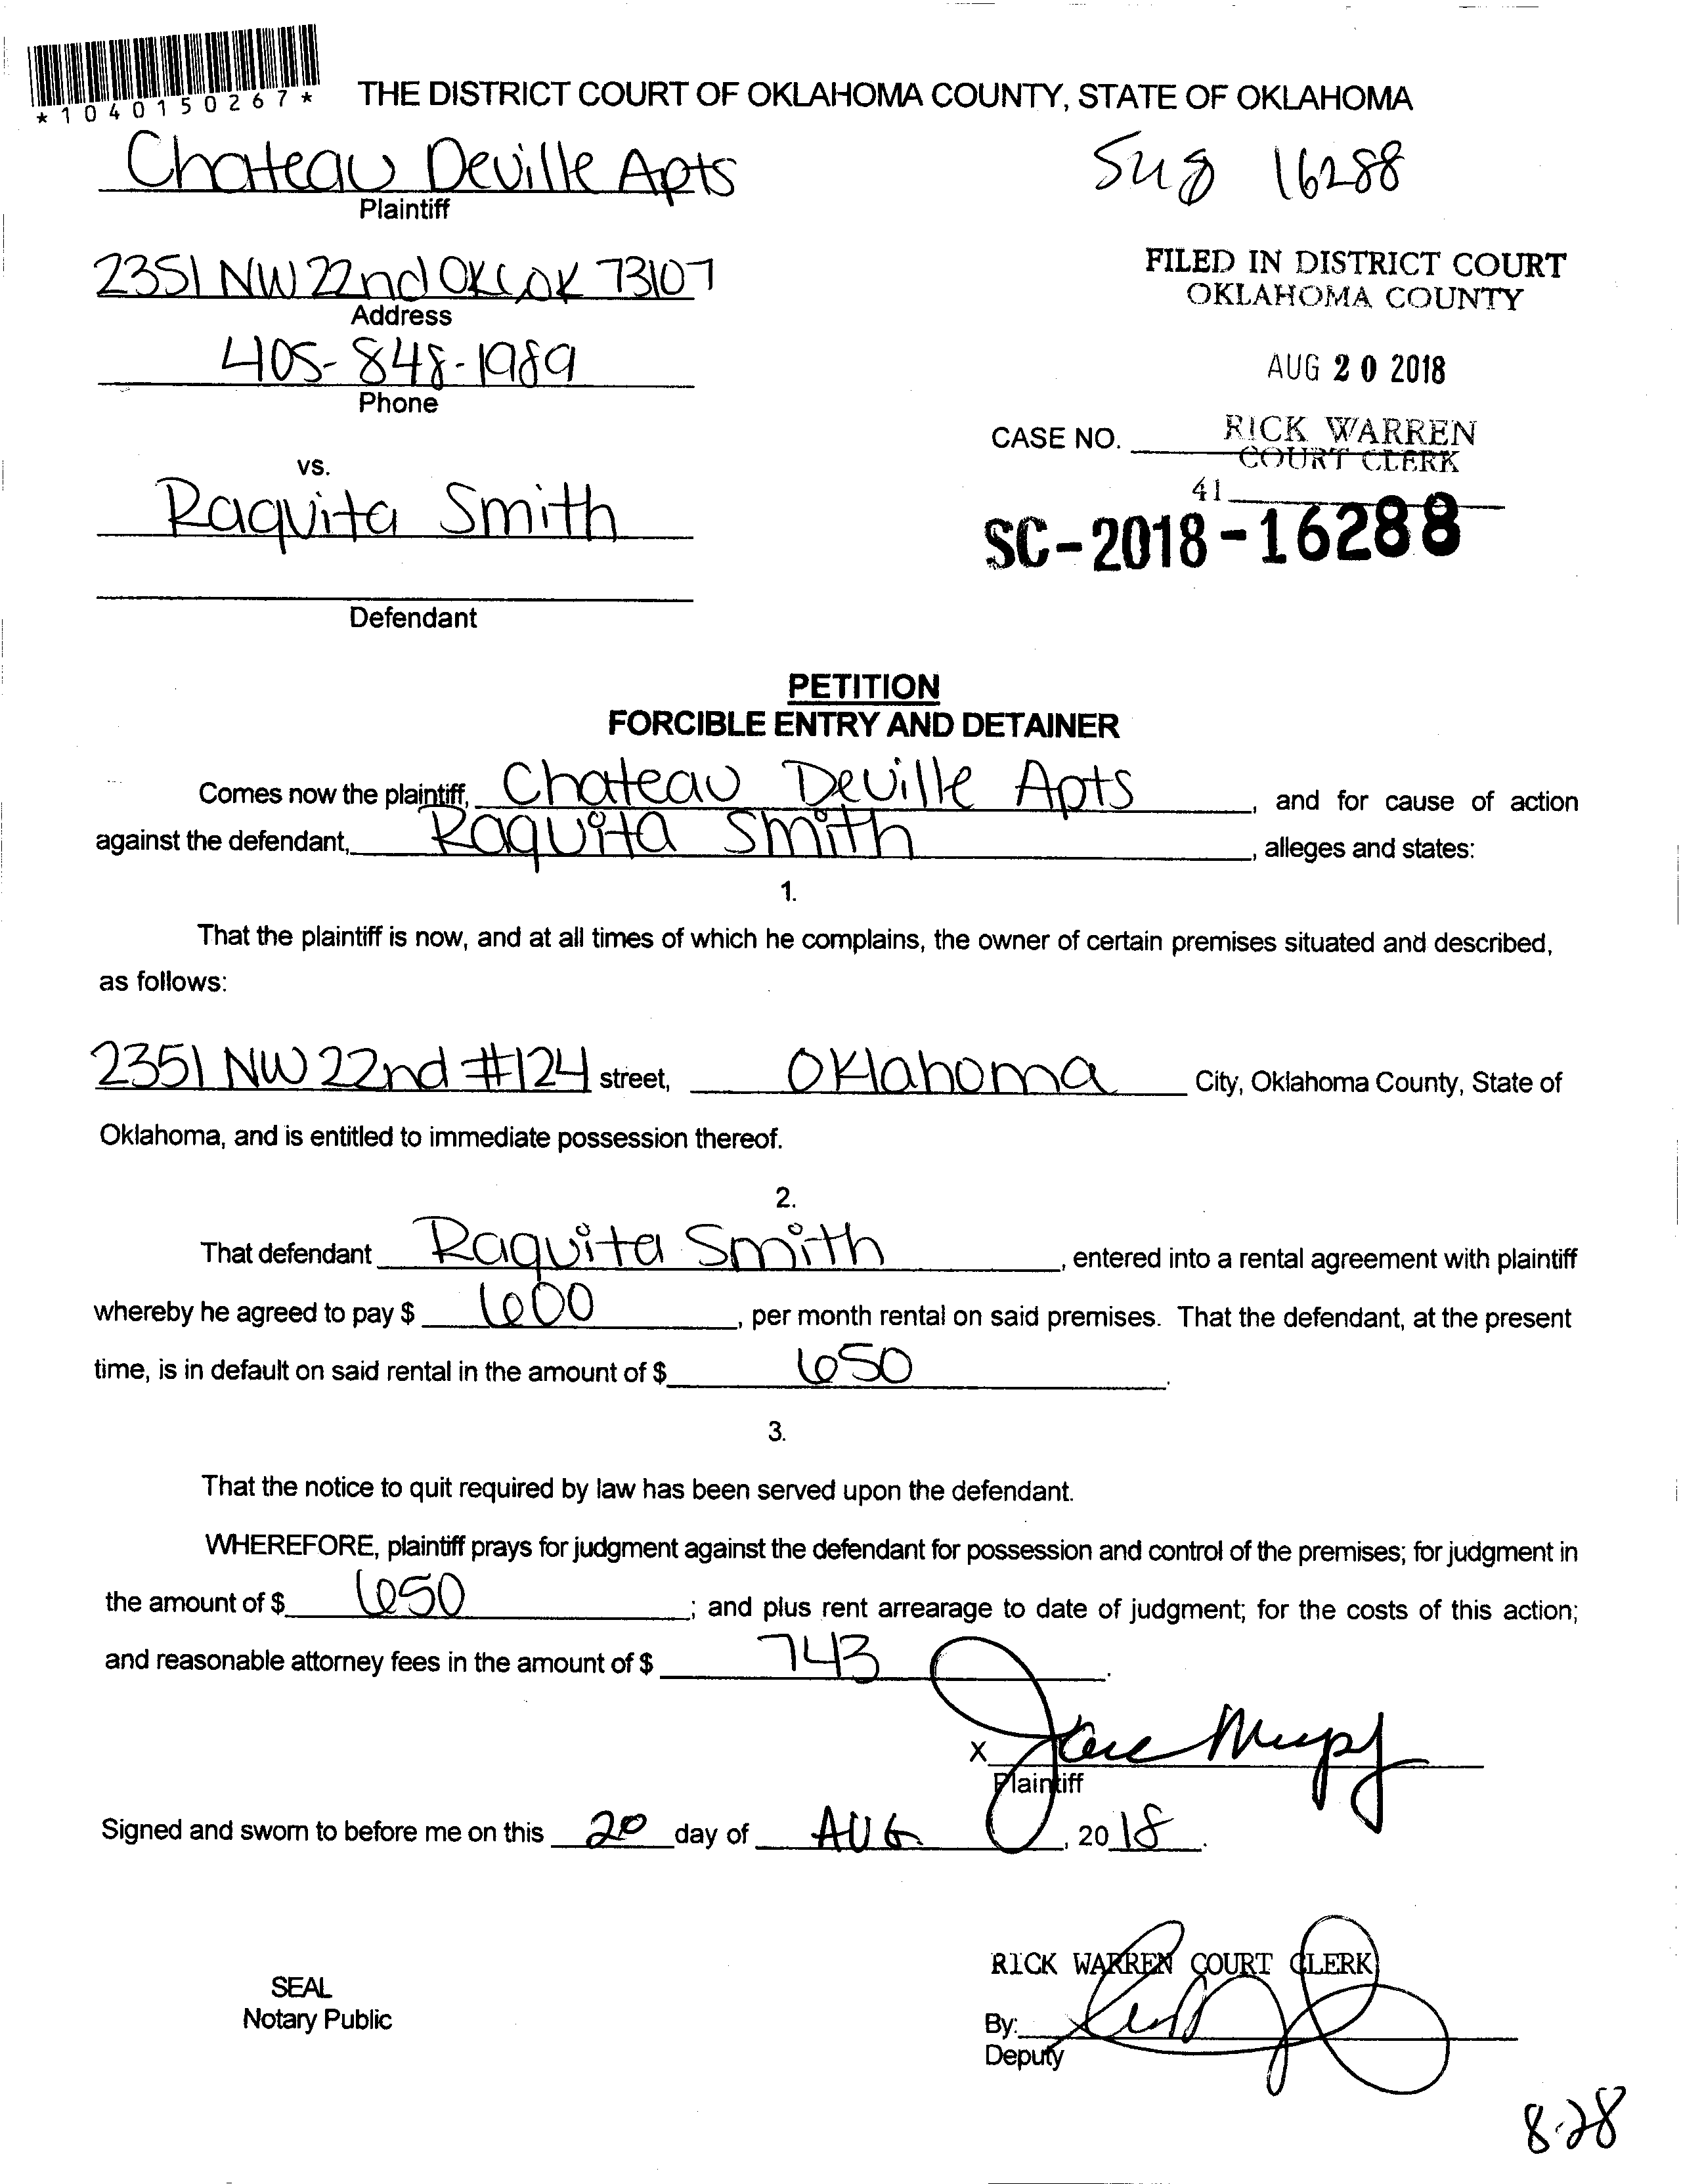 *1040150267*
THE DISTRICT COURT OF OKLAHOMA COUNTY, STATE OF OKLAHOMA
Chateau Deville Apts
Plaintiff
16288
2351 NW 22nd OKC OK 73107
Address
FILED IN DISTRICT COURT
OKLAHOMA COUNTY
405-848-1989
Phone
AUG 20 2018
CASE NO.
RICK WARREN
COURT CLERK
vs.
41
Raquita Smith
SC-2018-16288
Defendant
PETITION
FORCIBLE ENTRY AND DETAINER
Comes now the plaintiff, Chateau Deville Apts, and for cause of action
against the defendant, Raquita Smith, alleges and states:
1.
That the plaintiff is now, and at all times of which he complains, the owner of certain premises situated and described,
as follows:
2351 NW 22nd #124 street, Oklahoma City, Oklahoma County, State of
Oklahoma, and is entitled to immediate possession thereof.
2.
That defendant Raquita Smith, entered into a rental agreement with plaintiff
whereby he agreed to pay $ 600, per month rental on said premises. That the defendant, at the present
time, is in default on said rental in the amount of $ 650.
3.
That the notice to quit required by law has been served upon the defendant.
WHEREFORE, plaintiff prays for judgment against the defendant for possession and control of the premises; for judgment in
the amount of $ 650; and plus rent arrearage to date of judgment; for the costs of this action;
and reasonable attorney fees in the amount of $ 743.
X
Plaintiff
Signed and sworn to before me on this 20 day of AUG, 2018.
RICK WARREN COURT CLERK
SEAL
Notary Public
By:
Deputy
8-28